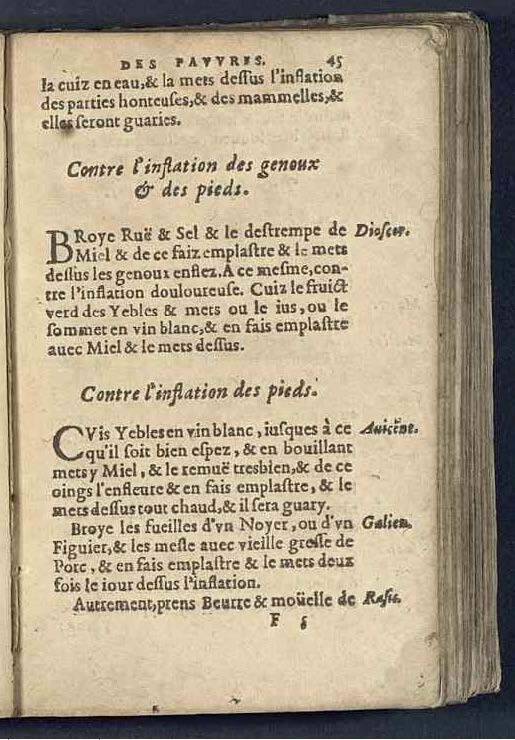 DES PAVVRES. 45
la cuiz en eau,& la mets deſſus l'inflation
des parties honteuſes,& des mammelles,&
elles ſeront guaries.
Contre l'inflation des genoux
& des pieds.
BRoye Ruë & Sel & le deſtrempe de Dioſcor.
Miel & de ce faiz emplaſtre & le mets
deſſus les genoux enflez. A ce meſme,con-
tre l'inflation douloureuſe. Cuiz le fruict
verd des Yebles & mets ou le ius,ou le
ſommet en vin blanc,& en fais emplaſtre
auec Miel & le mets deſſus.
Contre l'inflation des pieds.
CVis Yebles en vin blanc, iuſques à ce Auicēne.
qu'il ſoit bien eſpez, & en bouillant
mets y Miel, & le remuë tresbien,& de ce
oings l'enfleure & en fais emplaſtre, & le
mets deſſus tout chaud,& il ſera guary.
Broye les fueilles d'vn Noyer, ou d'vn Galien.
Figuier,& les meſle auec vieille greſſe de
Porc, & en fais emplaſtre & le mets deux
fois le iour deſſus l'inflation.
Autrement,prens Beurre & moüelle de Raſis.
F